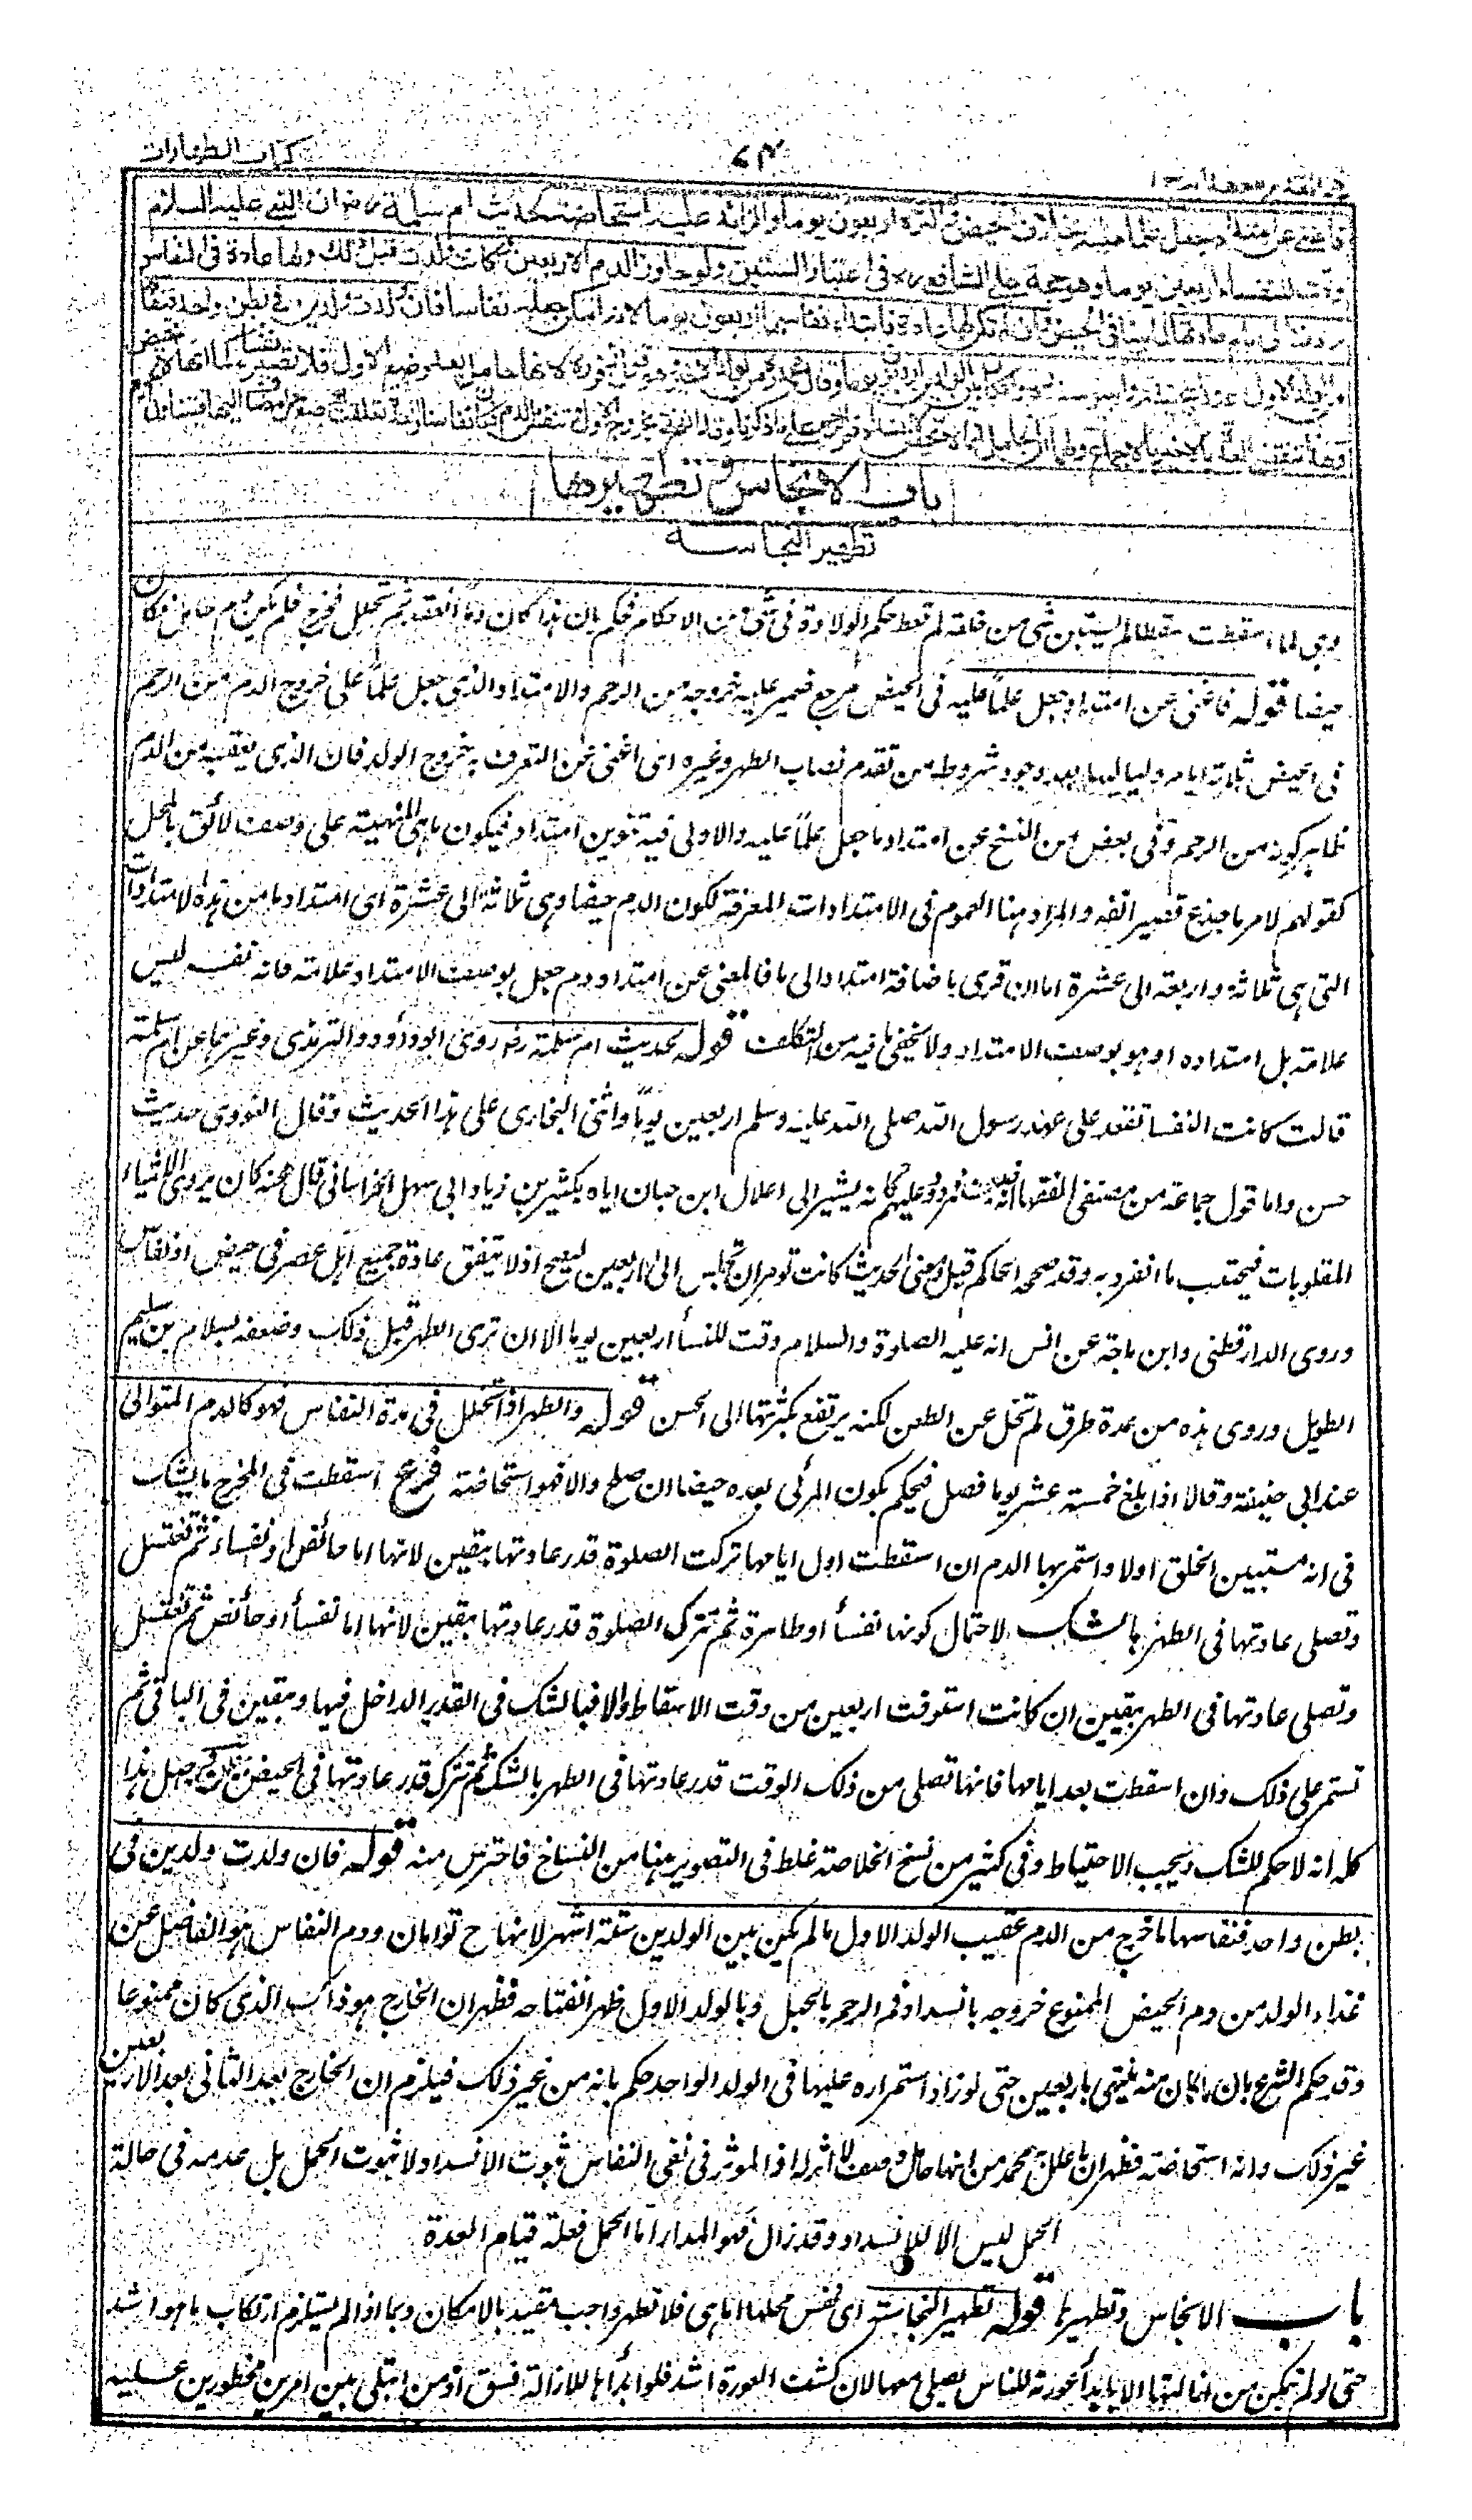 كتاب الطهارات
٧٤
فاغنى عن امتداد جعل علما عليه بخلاف الحيض اكثره اربعون يوما والزائد عليه استحاضة لحديث ام سلمة رض ان النبي عليه السلام
وقت للنفساء اربعين يوما وهو حجة على الشافعي ره في اعتبار الستين ولو جاوز الدم الاربعين وكانت ولدت قبل ذلك ولها عادة في النفاس
ردت الى ايام عادتها لما بينا في الحيض وان لم تكن لها عادة فابتداء نفاسها اربعون يوما لانه امكن جعله نفاسا فان ولدت ولدين في بطن واحد فنفاسها
من الولد الاول عند ابي حنيفة وابي يوسف
باب الانجاس وتطهيرها
تطهير النجاسة
وهي لما اسقطت سقطا لم يستبن شي من خلقه لم تعط حكم الولادة في شي من الاحكام فحكم بان هذا كان دما انعقد ثم تحلل فخرج فلم يكن دم حامل فكان
حيضا قوله فاغنى عن امتداد جعل علماً عليه في الحيض مرجع ضمير عليه خروجه من الرحم والامتداد الذي جعل علماً على خروج الدم من الرحم
في الحيض ثلاثة ايام ولياليها بعد وجود شروطه من تقدم نصاب الطهر وغيره اى اغنى عن التعرف به خروج الولد فان الذى يعقبه من الدم
ظاهر كونه من الرحم وفى بعض من النسخ عن امتداد ما جعل علماً عليه والاولى فيه تنوين امتداد فيكون ما هى المنهية على وصف لائق بالمحل
كقولهم لامر ما جدع قصير انفه والمراد هنا العموم فى الامتدادات المعرفة لكون الدم حيضا وهى ثلاثة الى عشرة اى امتداد ما من هذه الامتدادات
التى هى ثلاثة واربعة الى عشرة اما ان قرى باضافة امتداد الى ما فالمعنى عن امتداد دم جعل بوصف الامتداد علامة فانه نفسه ليس
علامة بل امتداده او هو بوصف الامتداد ولا يخفى ما فيه من التكلف قوله لحديث ام سلمة رض روى ابو داود والترمذى وغيرهما عن ام سلمة
قالت كانت النفساء تقعد على عهد رسول الله صلى الله عليه وسلم اربعين يوماً واثنى البخارى على هذا الحديث وقال النووى حديث
حسن واما قول جماعة من مصنفى الفقهاء انه ضعيف فمردود عليهم كانه يشير الى اعلال ابن حبان اياه بكثير بن زياد ابى سهل الخراسانى قال عنه كان يروى الاشياء
المقلوبات فيجتنب ما انفرد به وقد صححه الحاكم قيل ومعنى الحديث كانت تومر ان تجلس الى الاربعين ليصح اذ لا يتفق عادة جميع اهل عصر فى حيض او نفاس
وروى الدارقطنى وابن ماجة عن انس انه عليه الصلوة والسلام وقت للنفسأ اربعين يوما الا ان ترى الطهر قبل ذلك وضعفه بسلام بن سليم
الطويل وروى هذه من عدة طرق لم تخل عن الطعن لكنه يرتفع بكثرتها الى الحسن قوله والطهر اذا تخلل فى مدة النفاس فهو كالدم المتوالى
عند ابى حنيفة وقالا اذا بلغ خمسة عشر يوما فصل فيحكم بكون المرئى بعده حيضا ان صلح والا فهو استحاضة فرع اسقطت فى المخرج ما يشك
فى انه مستبين الخلق اولا واستمر بها الدم ان اسقطت اول ايامها تركت الصلوة قدر عادتها بيقين لانها اما حائض او نفساء ثم تغتسل
وتصلى عادتها فى الطهر بالشك لاحتمال كونها نفسأ او طاهرة ثم تترك الصلوة قدر عادتها بيقين لانها اما نفسأ او حائض ثم تغتسل
وتصلى عادتها فى الطهر بيقين ان كانت استوفت اربعين من وقت الاسقاط والا فبالشك فى القدر الداخل فيها وبيقين فى الباقى ثم
تستمر على ذلك وان اسقطت بعد ايامها فانها تصلى من ذلك الوقت قدر عادتها فى الطهر بالشك ثم تترك قدر عادتها فى الحيض بيقين وحاصل هذا
كله انه لا حكم للشك ويجب الاحتياط وفى كثير من نسخ الخلاصة غلط فى التصوير هنا من النساخ فاحترس منه قوله فان ولدت ولدين فى
بطن واحد فنفاسها ما خرج من الدم عقيب الولد الاول ما لم يكن بين الولدين ستة اشهر لانها ح توامان ودم النفاس هو الفاضل عن
غذاء الولد من دم الحيض الممنوع خروجه بانسداد فم الرحم بالحبل وبالولد الاول ظهر انفتاحه فظهر ان الخارج هو ذاك الذى كان ممنوعا
وقد حكم الشرع بان ما كان منه ينتهى باربعين حتى لو زاد استمراره عليها فى الولد الواحد حكم بانه من غير ذلك فيلزم ان الخارج بعد الثانى بعد الاربعين
غير ذلك وانه استحاضة فظهر ان ما علل به محمد من انها حامل وصف لا اثر له اذ الموثر فى نفى النفاس ثبوت الانسداد لا ثبوت الحمل بل عدمه فى حالة
الحمل ليس الا للانسداد وقد زال فهو المدار اما الحمل فعلة قيام العدة
باب الانجاس وتطهيرها قوله تطهير النجاسة اى نفس محلها اما هى فلا تطهر واجب مقيد بالامكان وبما اذا لم يستلزم ارتكاب ما هو اشد
حتى لو لم يتمكن من ازالتها الا بابداء عورته للناس يصلى معها لان كشف العورة اشد فلو ابدأها للازالة فسق اذ من ابتلى بين امرين محظورين عليه